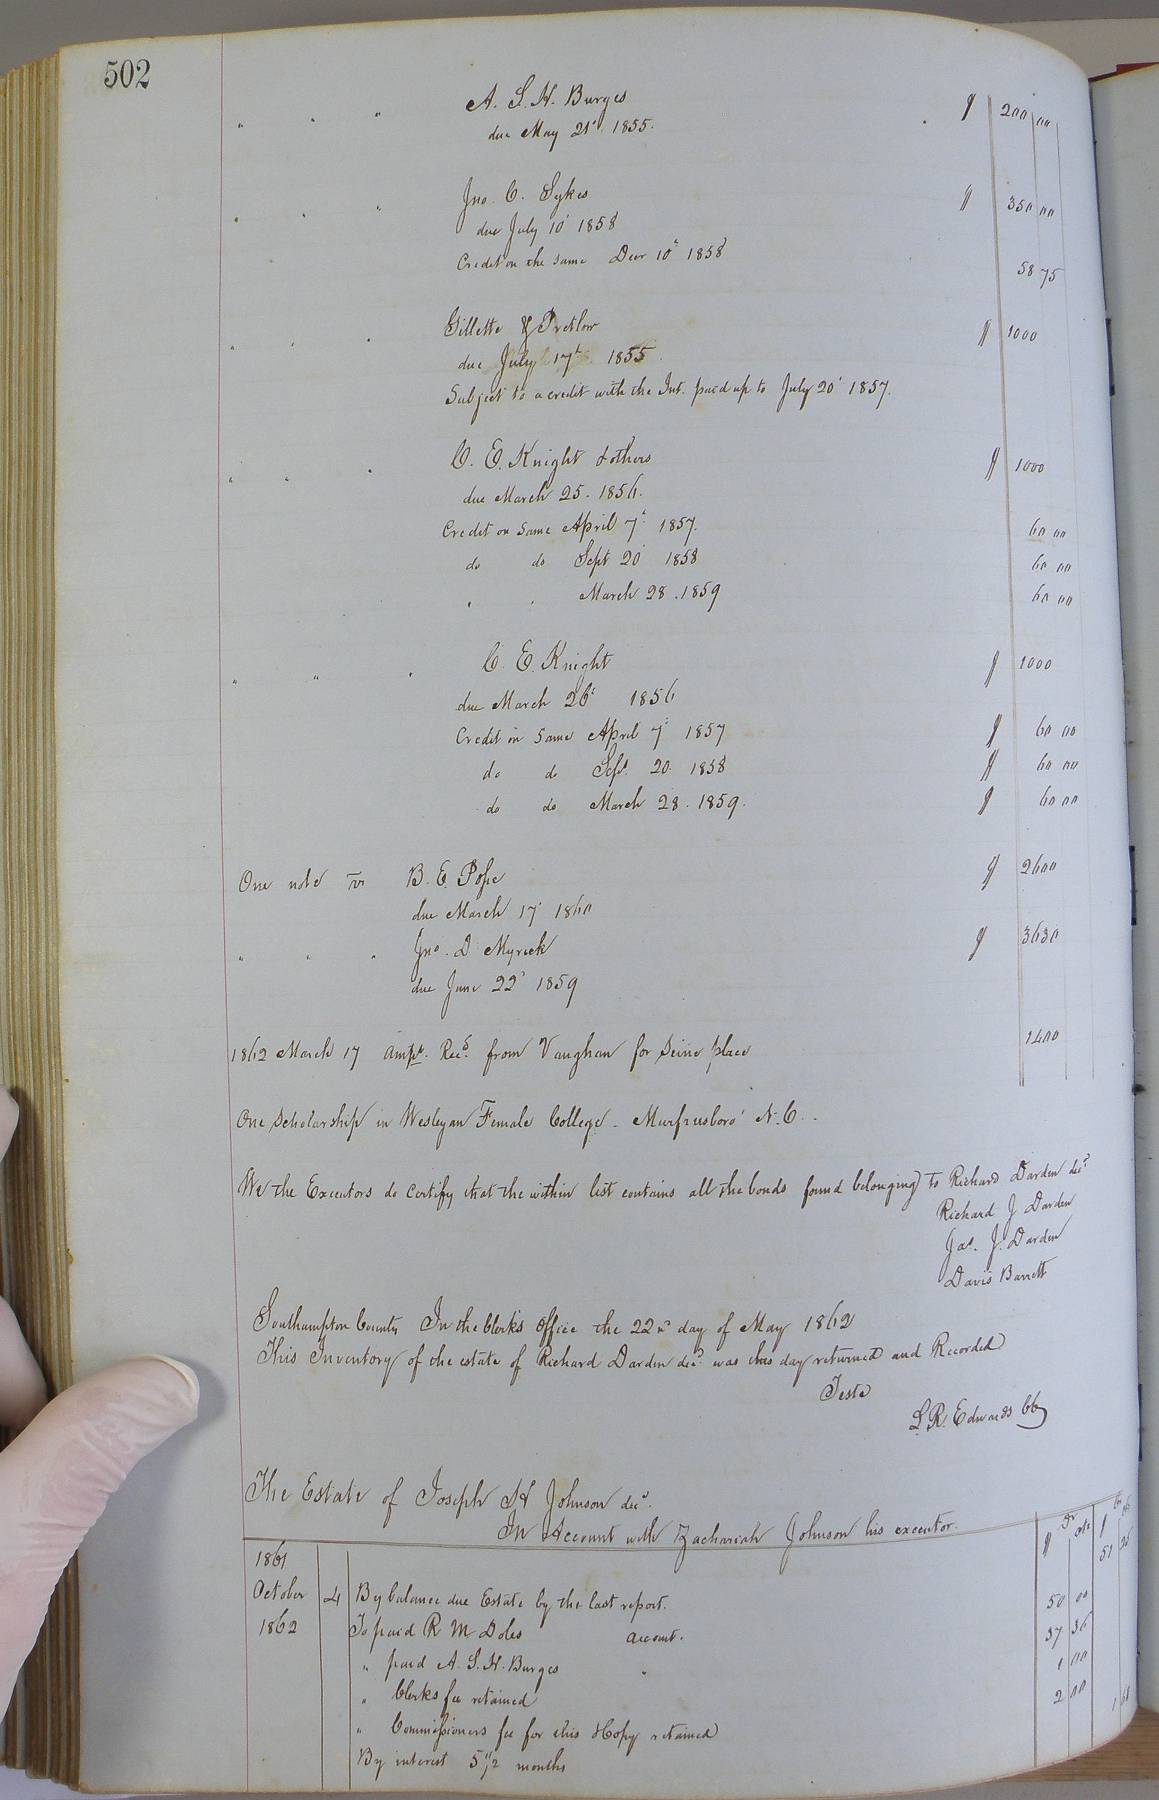 502
" " " A. S. H. Burges $ 200 00
due May 21st 1855.
" " " Jno. C. Sykes $ 350 00
due July 10th 1858
Credit on the same Decr 10th 1858 58 75
" " " Gillette & Pretlow $ 1000
due July 17th 1855.
Subject to a credit with the Int. paid up to July 20th 1857.
" " " C. E. Knight & others $ 1000
due March 25. 1856.
Credit on Same April 7th 1857. 60 00
do do Sept 20th 1858 60 00
" " March 28. 1859 60 00
" " " C. E. Knight $ 1000
due March 26th 1856
Credit on Same April 7th 1857 $ 60 00
do do Sept. 20. 1858 $ 60 00
do do March 28. 1859. $ 60 00
One note vs B. E. Pope $ 2600
due March 17th 1860
" " " Jno. D Myrick $ 3630
due June 22d 1859
1862 March 17 Amt. Recd. from Vaughan for Seine place 1400
One Scholarship in Wesleyan Female College - Murfreesboro' N. C.
We the Executors do certify that the within list contains all the bonds found belonging to Richard Darden decd
Richard J Darden
Jas. J. Darden
Davis Barrett
Southampton County In the Clerk's Office the 22nd day of May 1862
This Inventory of the estate of Richard Darden decd was this day returned and Recorded
Teste
L. R. Edwards CC
The Estate of Joseph H Johnson decd.
In Account with Zachariah Johnson his executor.
$ Dr cts $ Cr cts
1861
October 4 By balance due Estate by the last report. 51 25
1862 To paid R M Doles account. 50 00
" paid A. S. H. Burges " 37 36
" Clerks fee retained 1 00
" Commissioners fee for this & Copy retained 2 00
By interest 5 1/2 months 1 68